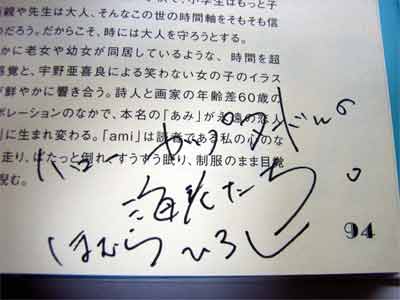 小学生はもっと子
親や先生は大人、そんなこの世の時間軸をそもそも信
だろう。だからこそ、時には大人を守ろうとする。
かに老女や幼女が同居しているような、時間を超
感覚と、宇野亜喜良による笑わない女の子のイラス
鮮やかに響き合う。詩人と画家の年齢差60歳の
ボレーションのなかで、本名の「あみ」が永遠の恋人
」に生まれ変わる。「ami」は読者である私の心のな
走り、ばたっと倒れ、すうすう眠り、制服のまま目覚
睨む。
ハロー
たち
ほむらひろし
94